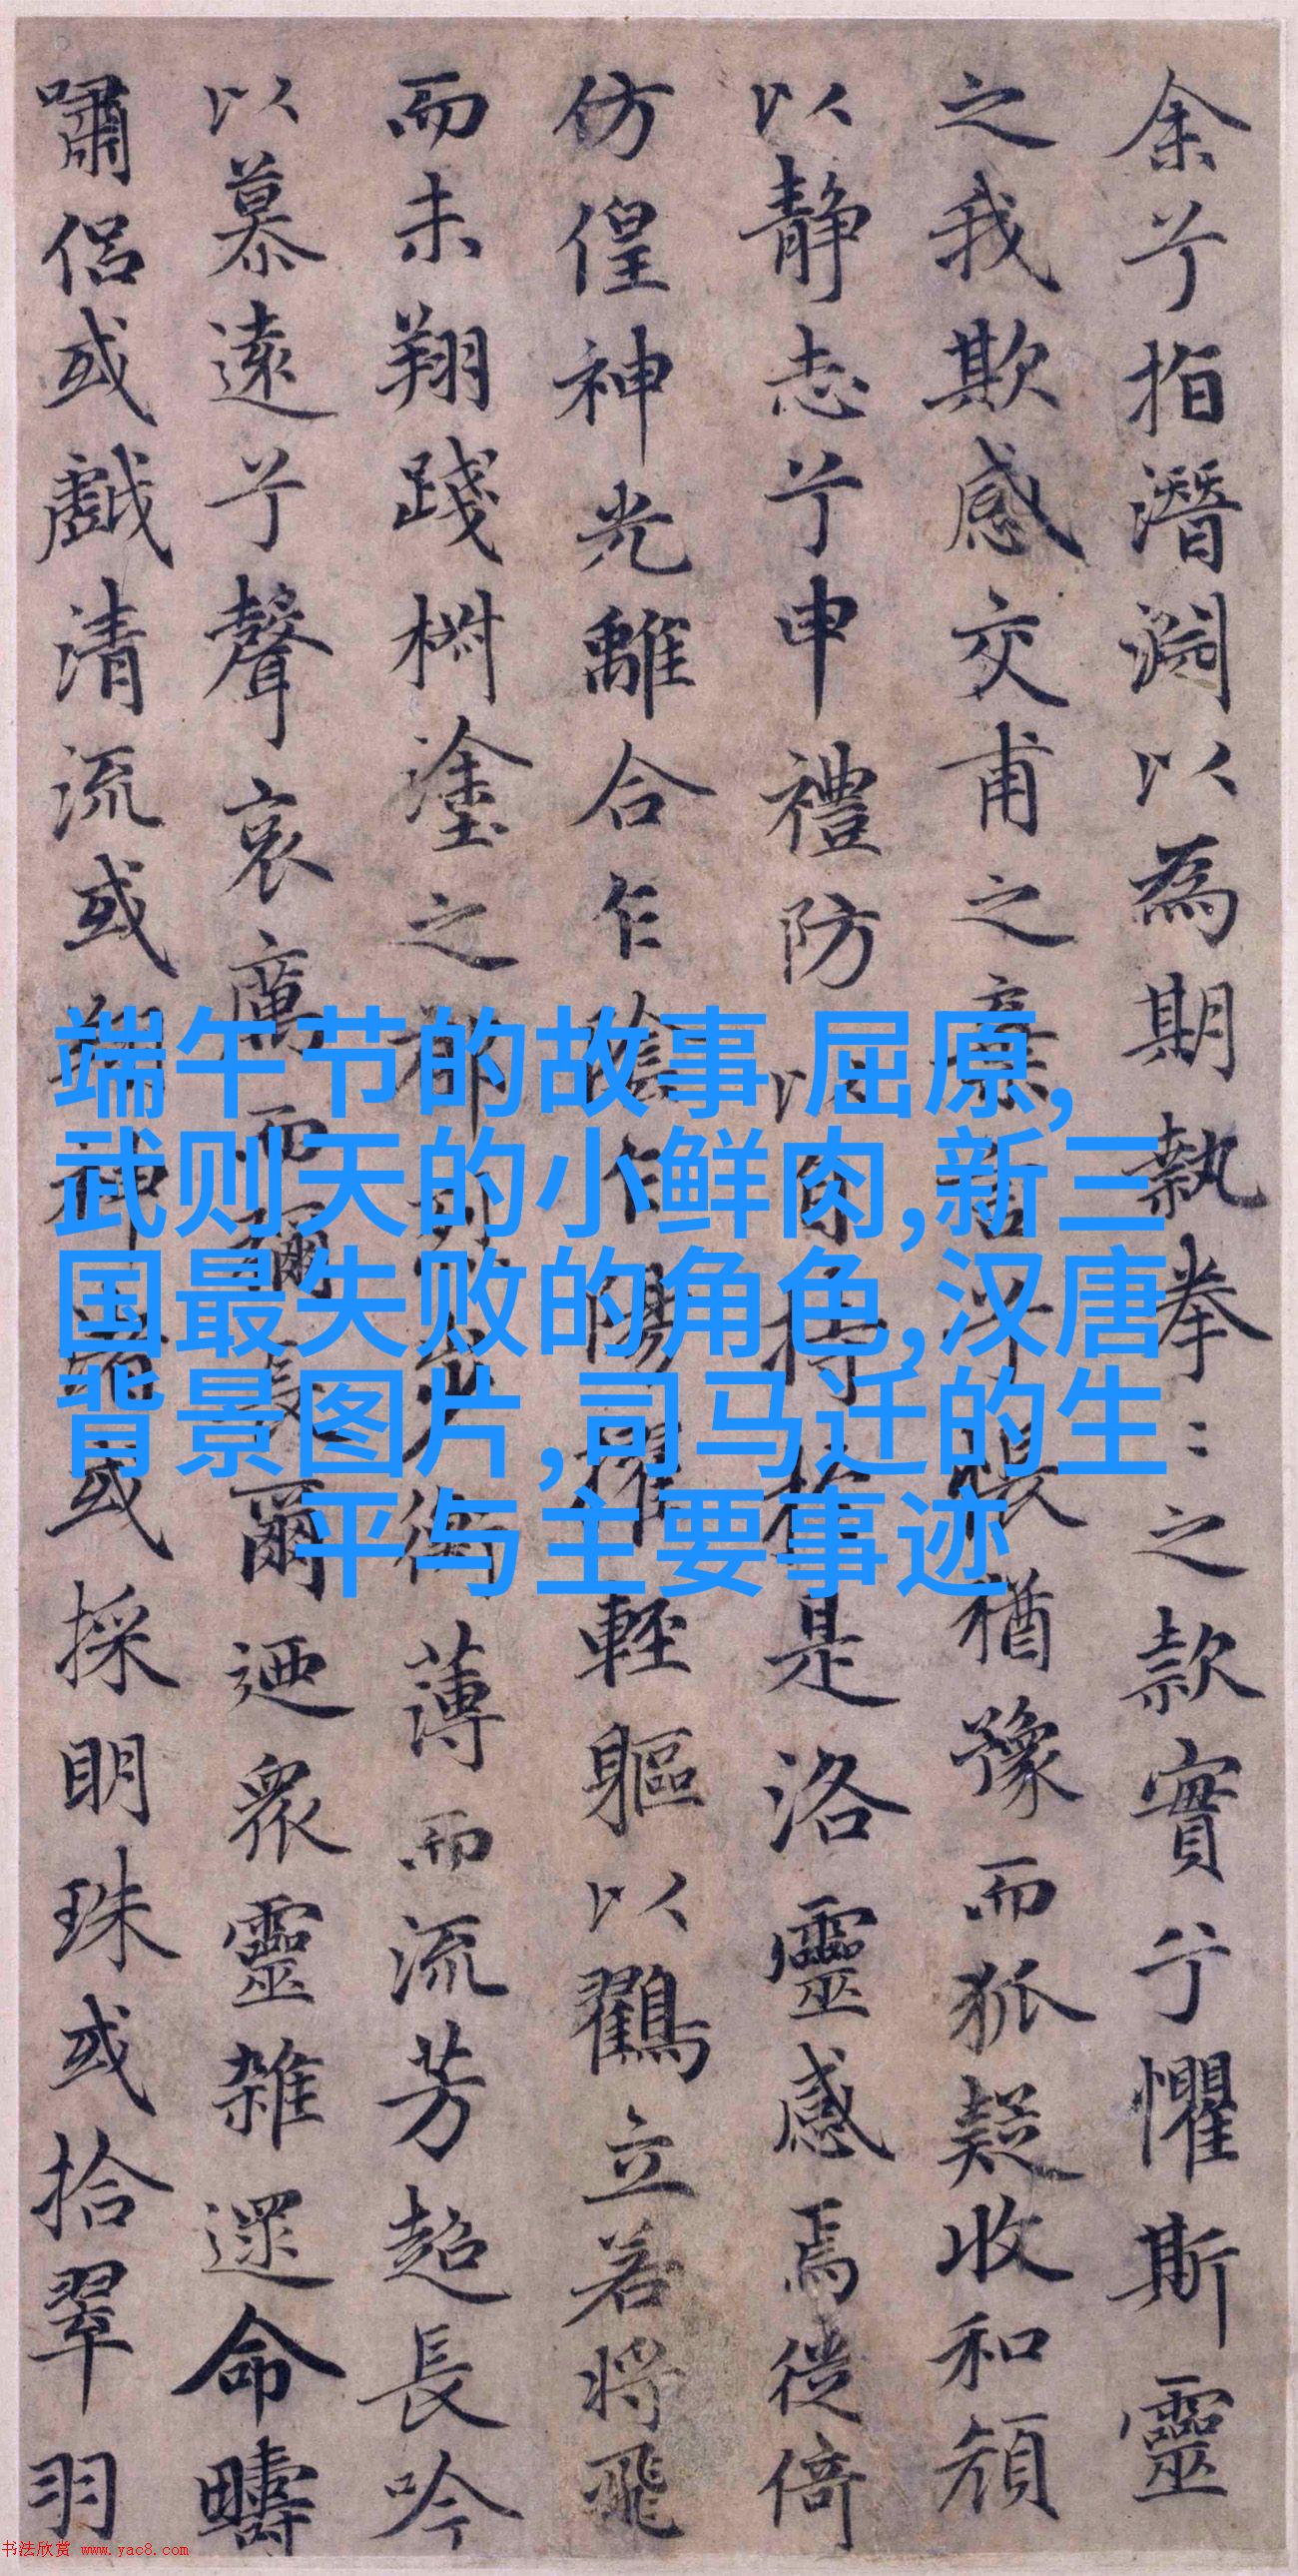 余兮指潛淵以為期執拳〻之款實兮懼斯靈
之我欺感交甫之棄言兮悵猶豫而狐疑收和顏
以靜志兮申禮防以自持於是洛靈感焉徙倚
仿偟神光離合乍陰乍陽擢輕軀以鶴立若將飛
而未翔踐椒塗之郁烈步蘅薄而流芳超長吟
以慕遠兮聲哀厲而彌長爾迺衆靈雜遝命疇
嘯侶或戲清流或翔神渚或採明珠或拾翠羽
端午节的故事 屈原,
武则天的小鲜肉,新三
国最失败的角色,汉唐
背景图片,司马迁的生
平与主要事迹
书法欣赏 www.yac8.com